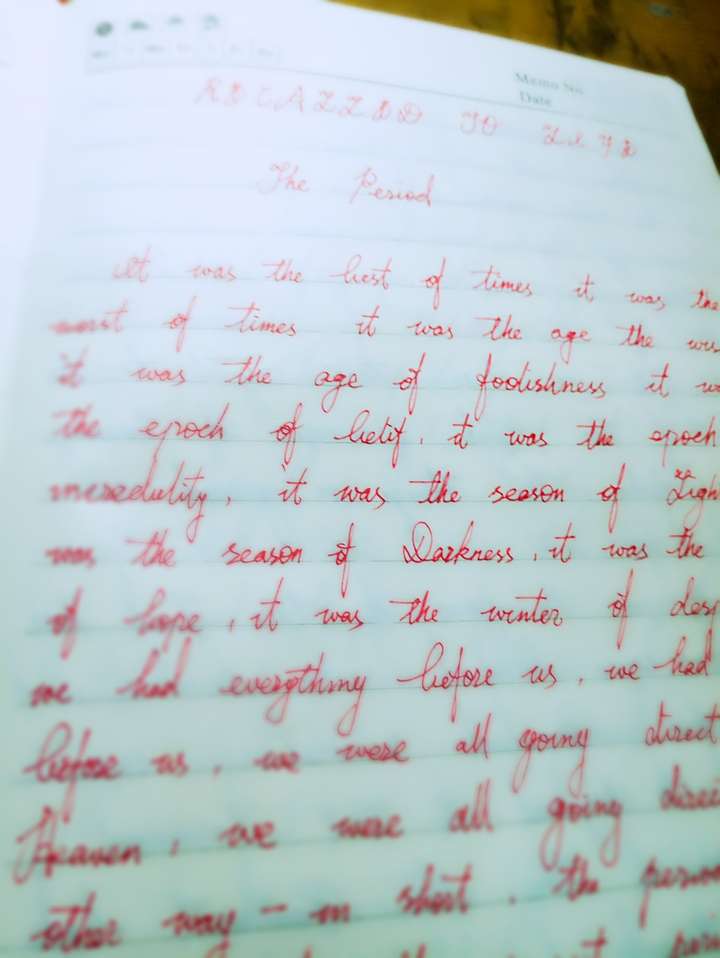 Memo No.
Date
RECALLED TO LIFE
The Period
It was the best of times it was the
worst of times it was the age the wis
it was the age of foolishness it w
the epoch of belif, it was the epoch
increzdulity, it was the season of Ligh
was the season of Darkness, it was the
of hope, it was the winter of desp
we had everythmg before us, we had
before us, we were all going direct
Heaven, we were all going direc
other way - in short, the period